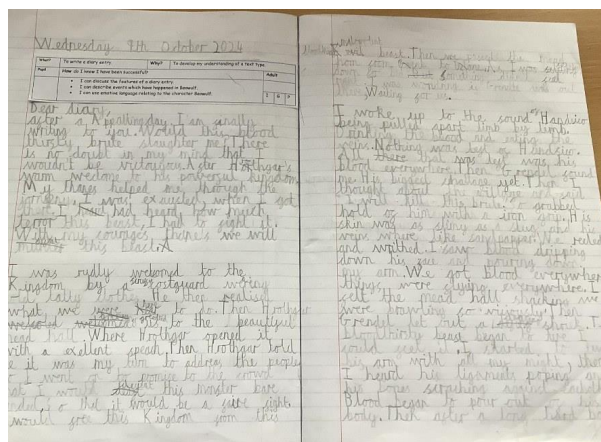 Wednesday 9th October 2024
What? To write a diary entry. Why? To develop my understanding of a text type.
How do I know I have been successful? Adult
I can discuss the features of a diary entry
I can describe events which have happened in Beowulf.
I can use emotive language relating to the character Beowulf.
Dear diary,
after a Appealing day, I am finally
writing to you. Would this blood
thirsty brute slaughter me? There
is no doubt in my mind that
wouldn't be victorious under Hrothgar's
warm welcome to his powerful kingdom.
My thanes helped me through the
journey. I was exausted, when I got
there. I had heard how much
terror this beast. I had to fight it.
With my couroges thane's we will
murder this beast. A
I was rudly welcomed to the
Kingdom by a costguard wering
tatty clothes. He then realised
what we were to do. Then Hrothgar
welcomed us to the beautiful
mead hall. Where Hrothgar opened it
with a exellent speach. Then Hrothgar told
me it was my turn to address that people
I went on to the crowd
that I would this monster bare
handed, so that it would be a fair fight.
would free this Kingdom from this
evil beast. Then we
Waiting for us.
I woke up to the sound of Handsico
being pulled apart limb by limb.
drinking the blood and eating the
veins. Nothing was left of Handsico.
All that was left was his
blood everywhere. Then Grendel found
me. His biggest challenge yet. Then I
thought about
I will kill this brute. I grabed
hold of him with a iron grip. His
skin was as slimy as a slug and his
veins were like sandpaper. He reeled
and writhed. I saw blood dripping
down his face and pouring down
my arm. We got blood everywhere
things were flying everywhere. I
felt the mead hall shacking we
were brawling so viciously. Then
Grendel let out a shout. The
bloodthirsty beast began to tire I
could feel it. I started
his arm with all my might, then
I heard his ligaments poping and
his bones scraching against
Blood began to pour out of his
body. Then after a long hard